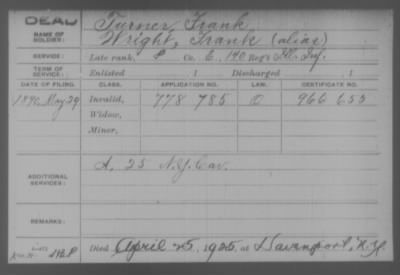 DEAD
NAME OF SOLDIER: Turner, Frank
Wright, Frank (alias)
SERVICE: Late rank, P Co. E, 140 Reg't Ills. Inf.
TERM OF SERVICE: Enlisted , 1 Discharged , 1
DATE OF FILING. CLASS. APPLICATION NO. LAW. CERTIFICATE NO.
1890, May 29 Invalid, 778 785 966 653
Widow,
Minor,
ADDITIONAL SERVICES: A. 25 N.Y. Cav.
REMARKS:
Died April 25, 1925, at Davenport, N.Y.